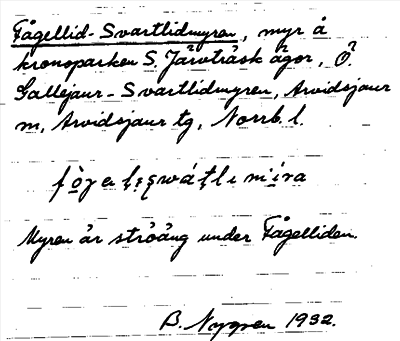 Fågellid-Svartlidmyren, myr å
kronoparken S. Järvträsk ägor, Ö.
Gallejaur-Svartlidmyren, Arvidsjaur
sn, Arvidsjaur tg, Norrb. l.
Myren är ströäng under Fågelliden.
B. Nygren 1932.